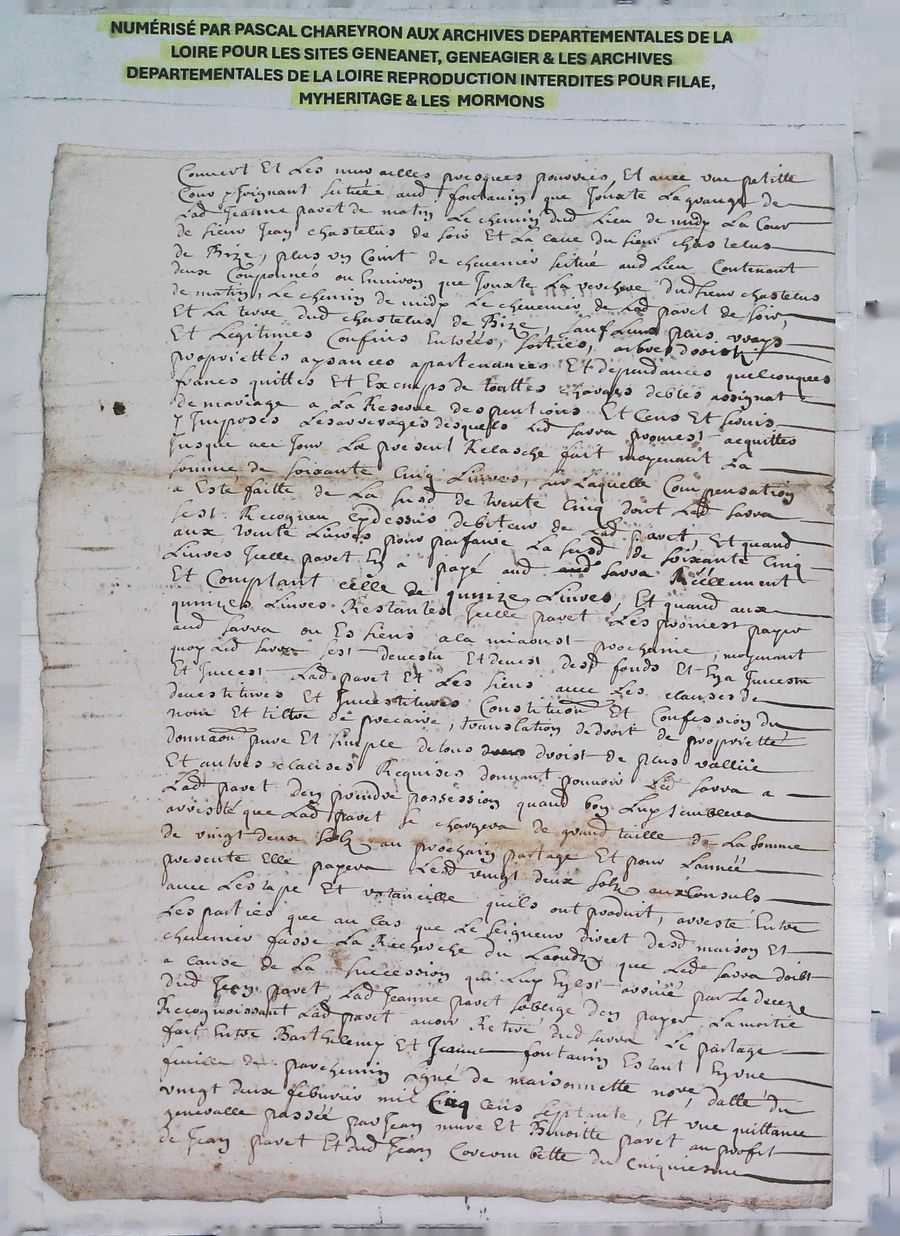 NUMÉRISÉ PAR PASCAL CHAREYRON AUX ARCHIVES DEPARTEMENTALES DE LA
LOIRE POUR LES SITES GENEANET, GENEAGIER & LES ARCHIVES
DEPARTEMENTALES DE LA LOIRE REPRODUCTION INTERDITES POUR FILAE,
MYHERITAGE & LES MORMONS
Couvert Et Les murailles presques pourries, Et avec une petitte
Cour y Joignant scituée aud fontanin que Jouxte La grange de
Lad Jeanne pavet de matin Le chemin dud Lieu de midy La Cour
de sieur Jean chastelus de soir Et La cave du sieur chastelus
de Bize, plus un Coirt de chenevier scitué aud Lieu Contenant
deux Couponnes ou Environ que Jouxte La verchere dud sieur chastelus
de matin, Le chemin de midy Le chenevier de Lad pavet de soir,
Et La terre dud chastelus de Bize, sauf Leurs plus vrays
Et Legitimes Confins Entrées, sorties, arbres droictz
propriettes aysances apartenances Et dépendances quelconques
francs quittes Et Exemps de touttes charges debtes assignat
de mariage a La Reserve des pentions Et Cens Et servis
y Imposés Les arrerages desquels Led savra promest acquitter
Jusque a ce Jour La present Relasche fait moyenant La
somme de soixante Cinq Livres, sur Laquelle Compensation
a Esté faitte de La susd de trente Cinq dont Led savra
sest Recogneu Cy dessus debiteur de Lad pavet, Et quand
aux trente Livres pour parfaire La susd de soixante Cinq
Livres Jcelle pavet En a payé aud savra Réellement
Et Comptant celle de quinze Livres, Et quand aux
quinzes Livres Restantes Jcelle pavet Les promest payer
aud savra ou Es siens a la miaoust prochaine, moyenant
quoy Led savra sest devestu Et devest desd fonds Et En a Jnvestu
Et Jnvest Lad pavet Et Les siens avec Les clauses de
devestitures Et Jnvestitures Constitution Et Confession du
nom Et tiltre de precaire, translation de droit de proprietté
donnaon pure Et simple de tous droist de plus vallüe
Et autres clauses Requises donnant pouvoir Led savra a
Lad pavet den prendre possession quand bon Luy semblera
arresté que Lad pavet se chargera de grand taille de La somme
de vingt deux solz au prochain partage Et pour Lannéé
presente Elle payera Lesd vingt deux solz aux Consuls
avec Lestape Et ustancille quils ont produit, arresté Entre
Les parties que au Cas que Le seigneur direct desd maison Et
chenevier fasse La Recherche du Laoudz que Led savra doibt
a cause de La succession qui Luy Eyst avenüe par Le decez
dud Jean pavet Lad Jeanne pavet soblige den payer La moitié
Recognoissant Lad pavet avoir Retiré dud savra Le partage
fait Entre Barthelemy Et Jeanne fontanin Estant En une
feuille de parchemin signé de maisonnette note, datté du
vingt deux febvrier mil Cinq cens septante, Et une quittance
generalle passée par Jean mure Et Benoitte pavet au profit
de Jean pavet Et dud Jean Corcombette du cinquiesme